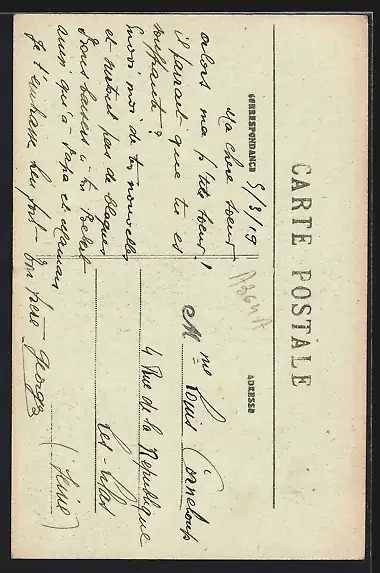 CARTE POSTALE
CORRESPONDANCE
5/3/19
Ma chère soeur
alors ma p'tite soeur!
il parrait que tu es
souffrante?
Envoi moi de tes nouvelles
et surtout pas de blagues
Bons baisers à
ainsi qu'à Papa et Maman
Je t'embrasse bien fort
Ton frère Georges
ADRESSE
A264A
Mme Louis Corneloup
4 Rue de la République
Les-Lilas
(Seine)